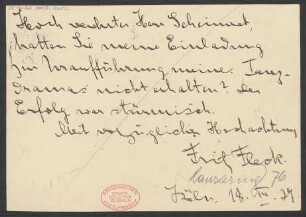 Hoch verehrter Herr
hatten Sie meine Einladung
zur Uraufführung meines Tanz-
dramas nicht erhalten? Der
Erfolg war stürmisch.
Mit vorzüglicher Hochachtung
Fritz Fleck.
Köln, 19.